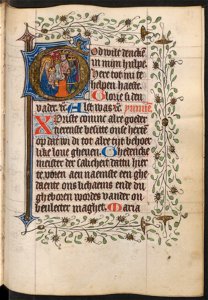 God wilt dencken
in mijn hulpe
Here tot mi te
helpen haeste
Glorie si den
vader &c Als it was &c ymne
Xpuste coninc alre goeder
hiermste besitte onse herte
op dat wi di tot alre tijt behoer
like loue gheuen Ghedencke
meister der salicheit dattu hier
te voren aen naemste een ghe
daente ons lichaems ende du
gheboren wordes vander on
beulecter maghet Maria